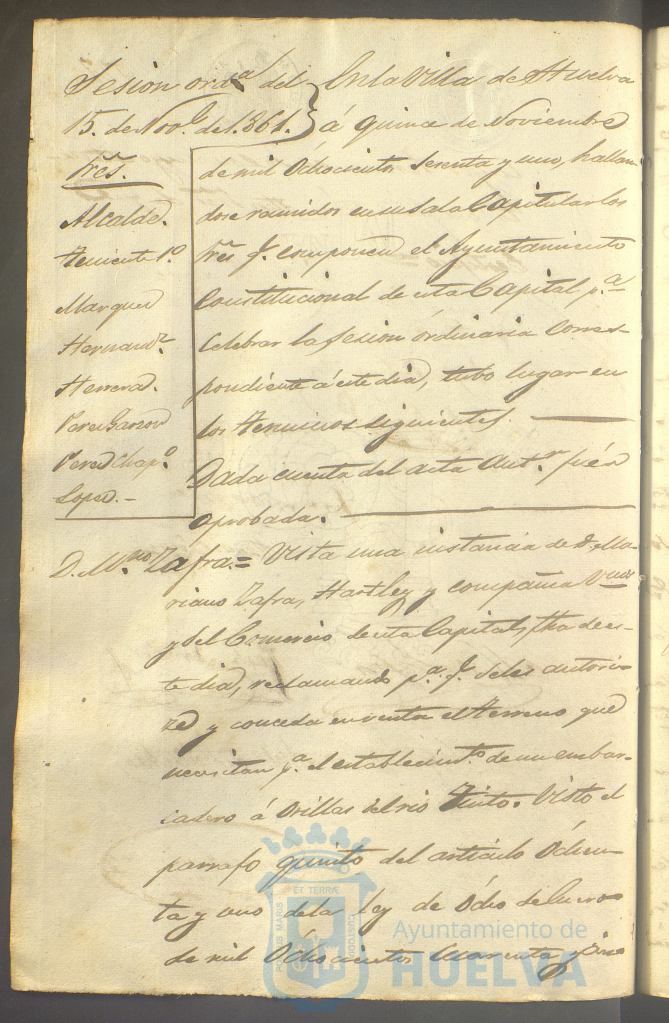 Sesion ordª del
15. de Novᵉ. de 1.861.
Sres.
Alcalde.
Teniente 1º
Marquez
Hernandz.
Herrera.
Perez Garzon
Perez Chapº
Lopez.-
En la Villa de Huelva
á quince de Noviembre
de mil Ochocientos sesenta y uno, hallan-
dose reunidos en su Sala Capitular los
Sres q. componen el Ayuntamiento
Constitucional de esta Capital pª
celebrar la sesion órdinaria corres-
pondiente á este dia, tubo lugar en
los terminos siguientes
Dada cuenta del acta antr. fué
aprobada.
D. Mno Zafra.= Vista una instancia de D. Ma-
riano Zafra, Hartley y compañia Vnos
y del Comercio de esta Capital, fha de es-
te dia, reclamando pª q. se les autori-
ze y conceda en venta el terreno que
necesitan pª el establecimto de un embar-
cadero á Orillas del rio Tinto. Visto el
parrafo quinto del articulo Ochen-
ta y uno de la ley de Ocho de Enero
de mil Ochocientos cuarenta y cinco
ET TERRÆ
PORTUS MARIS
CUSTODIA
Ayuntamiento de
HUELVA